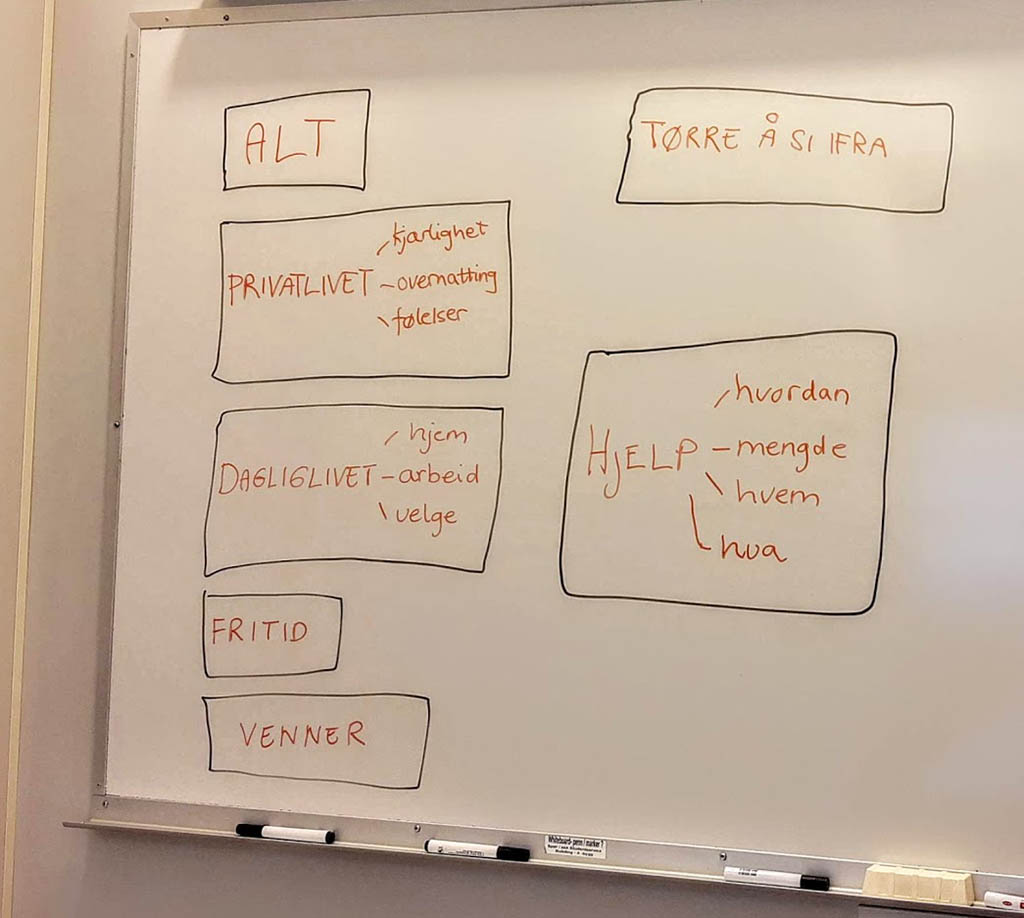 ALT
PRIVATLIVET
kjærlighet
overnatting
følelser
DAGLIGLIVET
hjem
arbeid
velge
FRITID
VENNER
TØRRE Å SI IFRA
HJELP
hvordan
mengde
hvem
hva
Whiteboard- penn / marker ?